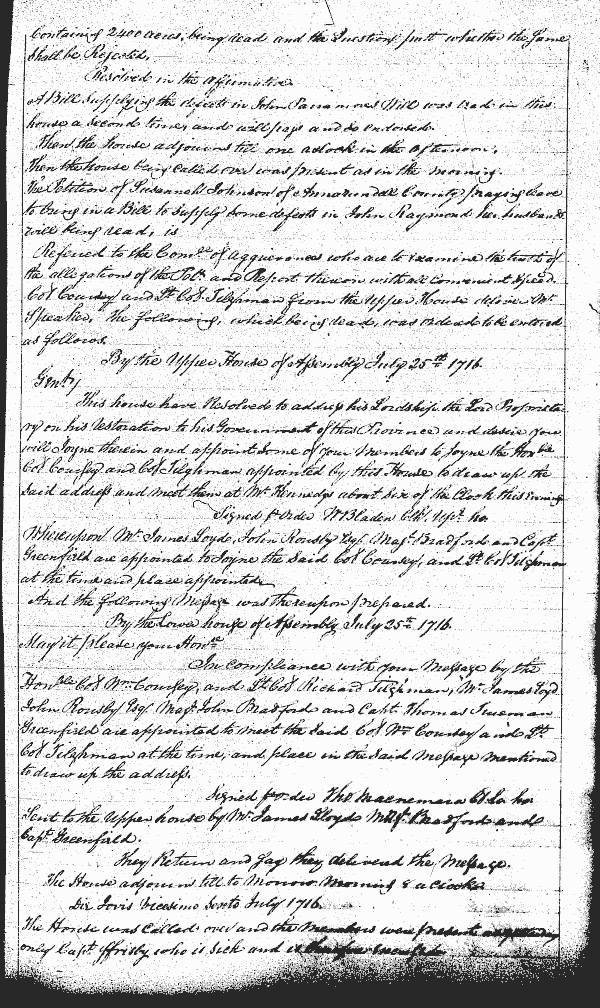 Containing 2400 acres, being read and the Question put whether the same
shall be Rejected,
Resolved in the affirmative
A Bill Supplying the defects in John Parramores Will was read in this
house a Second time, and will pass and so endorsed.
Then the house adjourns till one aclock in the afternoon,
Then the house being called over was present as in the morning.
The Petition of Susannah Johnson of Annarundall County praying leave
to bring in a Bill to Supply Some defects in John Raymond her husbands
will being read, is
Referred to the Comee of aggrievances who are to Examine the truth of
the allegations of the Petn and Report thereon with all convenient Speed.
Col Coursey and Lt Col Tilghman from the Upper House deliver Mr
Speaker, the following, which being read, was ordered to be entered
as follows.
By the Upper House of Assembly July 25th 1716.
Gentn
This house have Resolved to address his Lordship the Lord Proprieta-
ry on his restoration to his Government of this Province and desire you
will Joyne therein and appoint Some of your Members to Joyne the Honble
Col Coursey and Col Tilghman appointed by this House to draw up the
said address and meet them at Mr Kennedys about Six of the Clock this Evening
Signed p Order W Bladen Cl. Upr. ho.
Whereupon Mr. James Loyde, John Rousby Esqr Majr Bradford and Capt
Greenfield are appointed to Joyne the Said Col Coursey, and Lt Col Tilghman
at the time and place appointed
And the following Message was thereupon prepared.
By the Lower house of Assembly July 25th 1716
May it please your Honrs
In compliance with your Message by the
Honble Col Wm Coursey, and Lt Col Richard Tilghman, Mr James Loyd
John Rousby Esqr Majr John Bradford and Capt. Thomas Trueman
Greenfield are appointed to meet the Said Col Wm Coursey and Lt
Col Tilghman at the time, and place in the Said Message mentioned
to draw up the address.
Signed p order Tho Macnemara Cl Lo. ho.
Sent to the Upper house by Mr. James Lloyds Majr Bradford and
Capt Greenfield.
They Return and Say they delivered the Message.
The House adjourn till to Morrow Morning 8 a Clocke
Die Jovis Vicesimo Sexto July 1716.
The House was Called over and the Members were present as yesterday
only Capt ffrisby who is Sick and is therefore excused